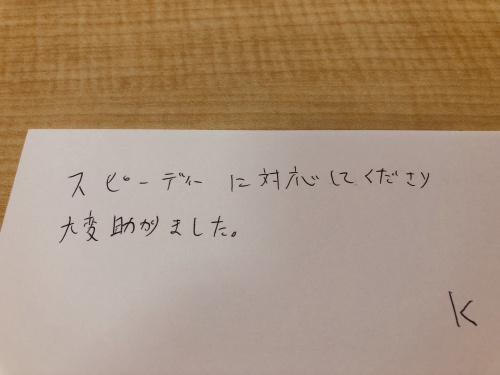 スピーディーに対応してくださり
大変助かりました。
K